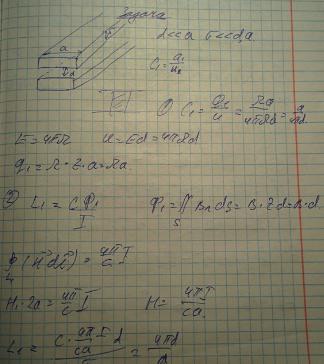 Задача
a
d
C₁ = q₁/U
① C₁ = Q₁/U = Ωa/4πΩd = a/4πd
E = 4πΩ   U = Ed = 4πΩd
q₁ = Ω · Z · a = Ωa.
② L₁ = CΦ₁/I   Φ₁ = ∬ Bn dS = B · Z d = B · d
S
∮ (H⃗ dl⃗) = 4π/c I
L
H · 2a = 4π/c I   H = 4πI/ca
L₁ = c · 4πI/ca d = 4πd/a